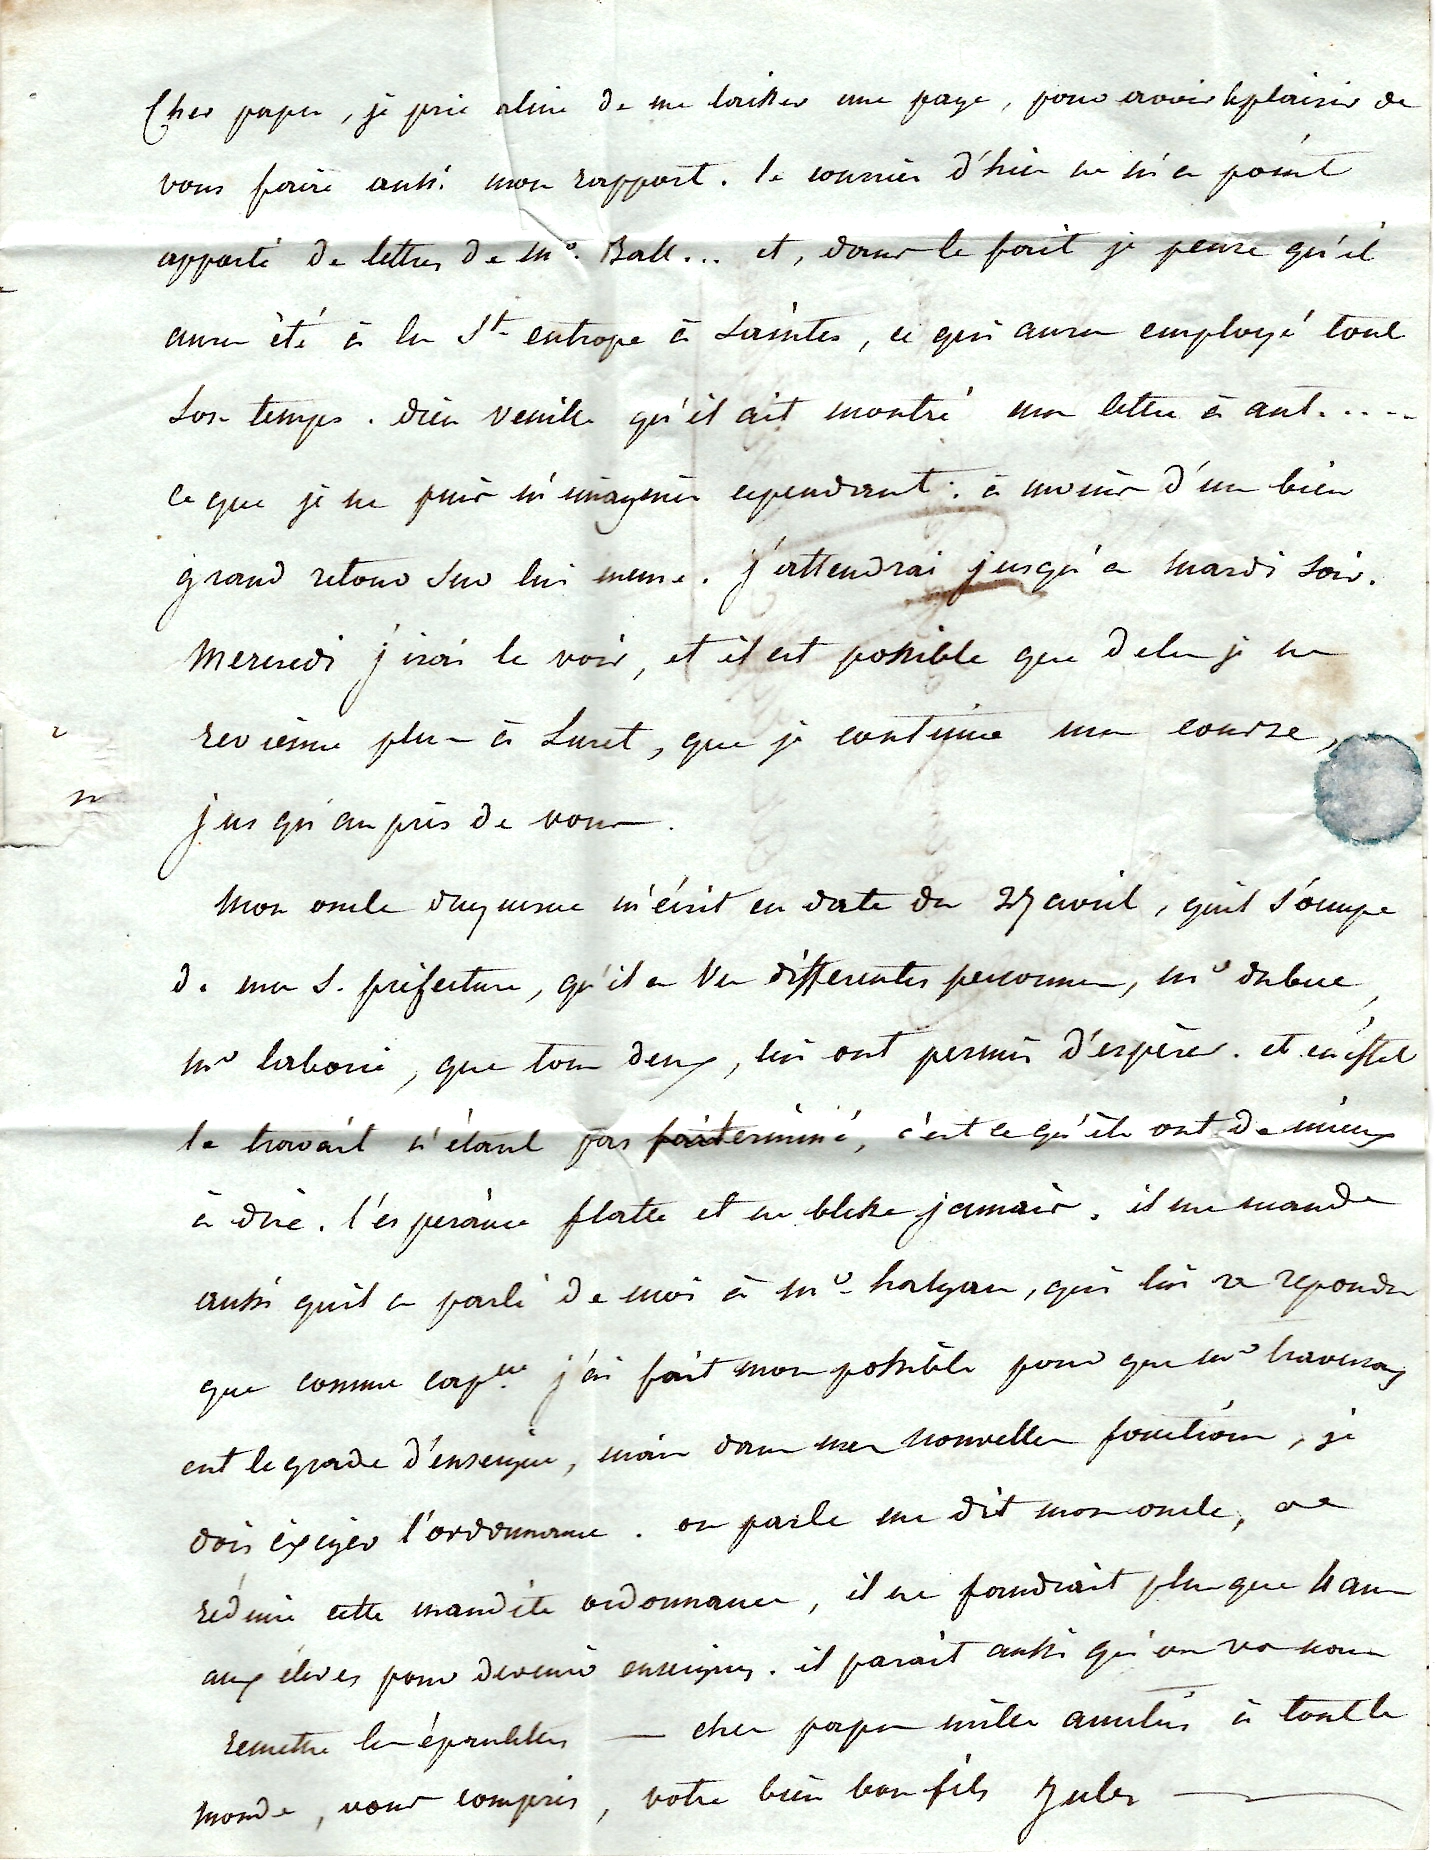 Cher papa, je prie aline de me laisser une page, pour avoir le plaisir de
vous faire aussi mon rapport. le courrier d'hier ne m'a point
apporté de lettres de mr. Ball... et, dans le fait je pense qu'il
aura été à la St eutrope à Saintes, ce qui aura employé tout
son temps. dieu veuille qu'il ait montré ma lettre à ant.....
ce que je ne puis m'imaginer cependant. à moins d'un bien
grand retour sur lui meme. j'attendrai jusqu'à mardi soir.
Mercredi j'irai le voir, et il est possible que dela je ne
revienne plus à Suret, que je continue ma course,
jusqu'auprès de vous.
Mon oncle duquesne m'écrit en date du 27 avril, quil s'occupe
de ma S. préfecture, qu'il a vu differentes personnes, mr dubuc,
mr laborie, que tous deux, lui ont permis d'espèrer. et en effet
le travail n'étant pas terminé, c'est ce qu'ils ont de mieux
à dire. l'espérance flatte et ne blesse jamais. il me mande
aussi quil a parlé de moi à mr halgan, qui lui a repondu
que comme capne j'ai fait mon possible pour que mr traversay
eut le grade d'enseigne, mais dans mes nouvelles fonctions, je
dois exiger l'ordonnance. on parle me dit mon oncle, de
réduire cette maudite ordonnance, il ne faudrait plus que 4 ans
aux élèves pour devenir enseignes. il parait aussi qu'on va nous
remettre les épaulettes — cher papa mille amitiés à tout le
monde, vous compris, votre bien bon fils Jules